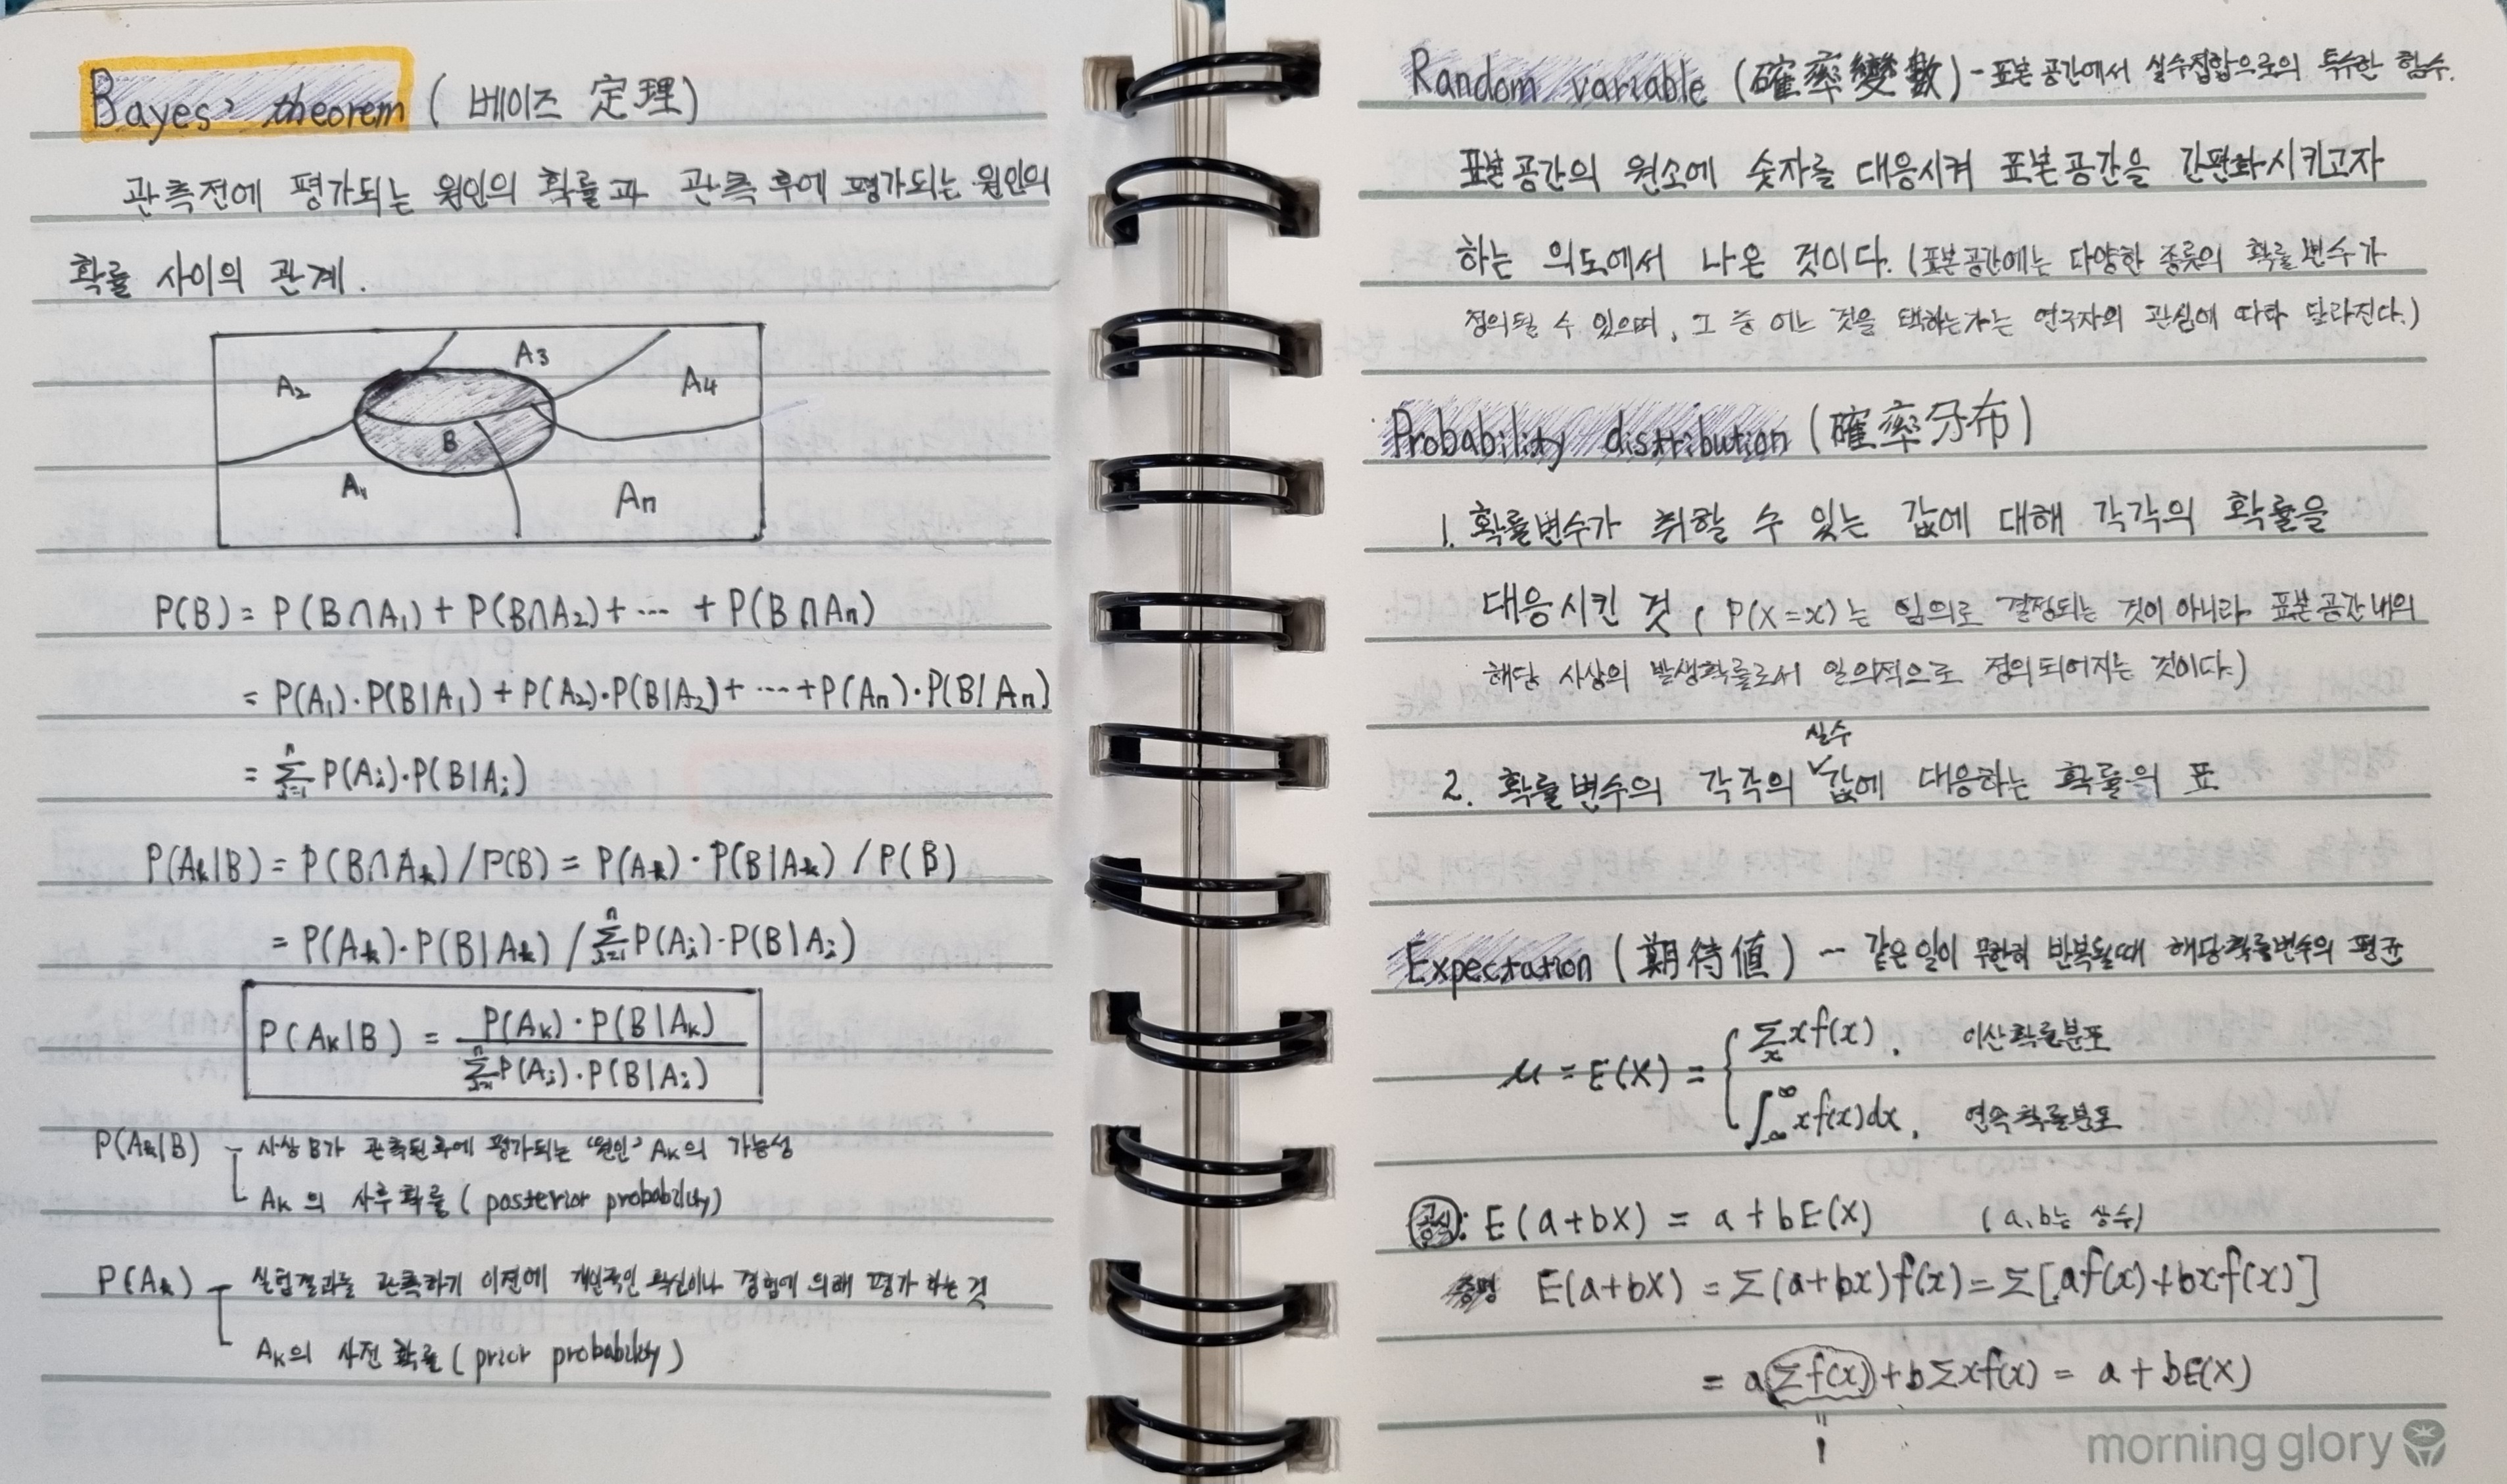 Bayes' theorem (베이즈 定理)
관측전에 평가되는 원인의 확률과 관측 후에 평가되는 원인의
확률 사이의 관계.
A2
A3
A4
B
A1
An
P(B) = P(B∩A1) + P(B∩A2) + … + P(B∩An)
= P(A1)·P(B|A1) + P(A2)·P(B|A2) + … + P(An)·P(B|An)
= Σ_{i=1}^{n} P(Ai)·P(B|Ai)
P(Ak|B) = P(B∩Ak) / P(B) = P(Ak)·P(B|Ak) / P(B)
= P(Ak)·P(B|Ak) / Σ_{i=1}^{n} P(Ai)·P(B|Ai)
P(Ak|B) = P(Ak)·P(B|Ak) / Σ_{i=1}^{n} P(Ai)·P(B|Ai)
P(Ak|B) - 사상 B가 관측된 후에 평가되는 '원인' Ak의 가능성
Ak의 사후 확률 (posterior probability)
P(Ak) - 실험결과를 관측하기 이전에 개인적인 확신이나 경험에 의해 평가하는 것
Ak의 사전 확률 (prior probability)
Random variable (確率變數) - 표본 공간에서 실수집합으로의 특수한 함수.
표본공간의 원소에 숫자를 대응시켜 표본공간을 간편화시키고자
하는 의도에서 나온 것이다. (표본공간에는 다양한 종류의 확률변수가
정의될 수 있으며, 그 중 어느 것을 택하는가는 연구자의 관심에 따라 달라진다.)
Probability distribution (確率分布)
1. 확률변수가 취할 수 있는 값에 대해 각각의 확률을
대응시킨 것 ( P(X=x)는 임의로 결정되는 것이 아니라 표본공간내의
해당 사상의 발생확률로서 일의적으로 정의되어지는 것이다.)
실수
2. 확률변수의 각각의 ∨값에 대응하는 확률의 표
Expectation (期待値) - 같은일이 무한히 반복될때 해당확률변수의 평균
μ = E(X) = { Σ_x xf(x), 이산확률분포
∫_{-∞}^{∞} xf(x)dx, 연속확률분포
공식: E(a+bX) = a+bE(X) (a, b는 상수)
증명 E(a+bX) = Σ(a+bx)f(x) = Σ[af(x)+bxf(x)]
= aΣf(x) + bΣxf(x) = a + bE(X)
॥
1
morning glory